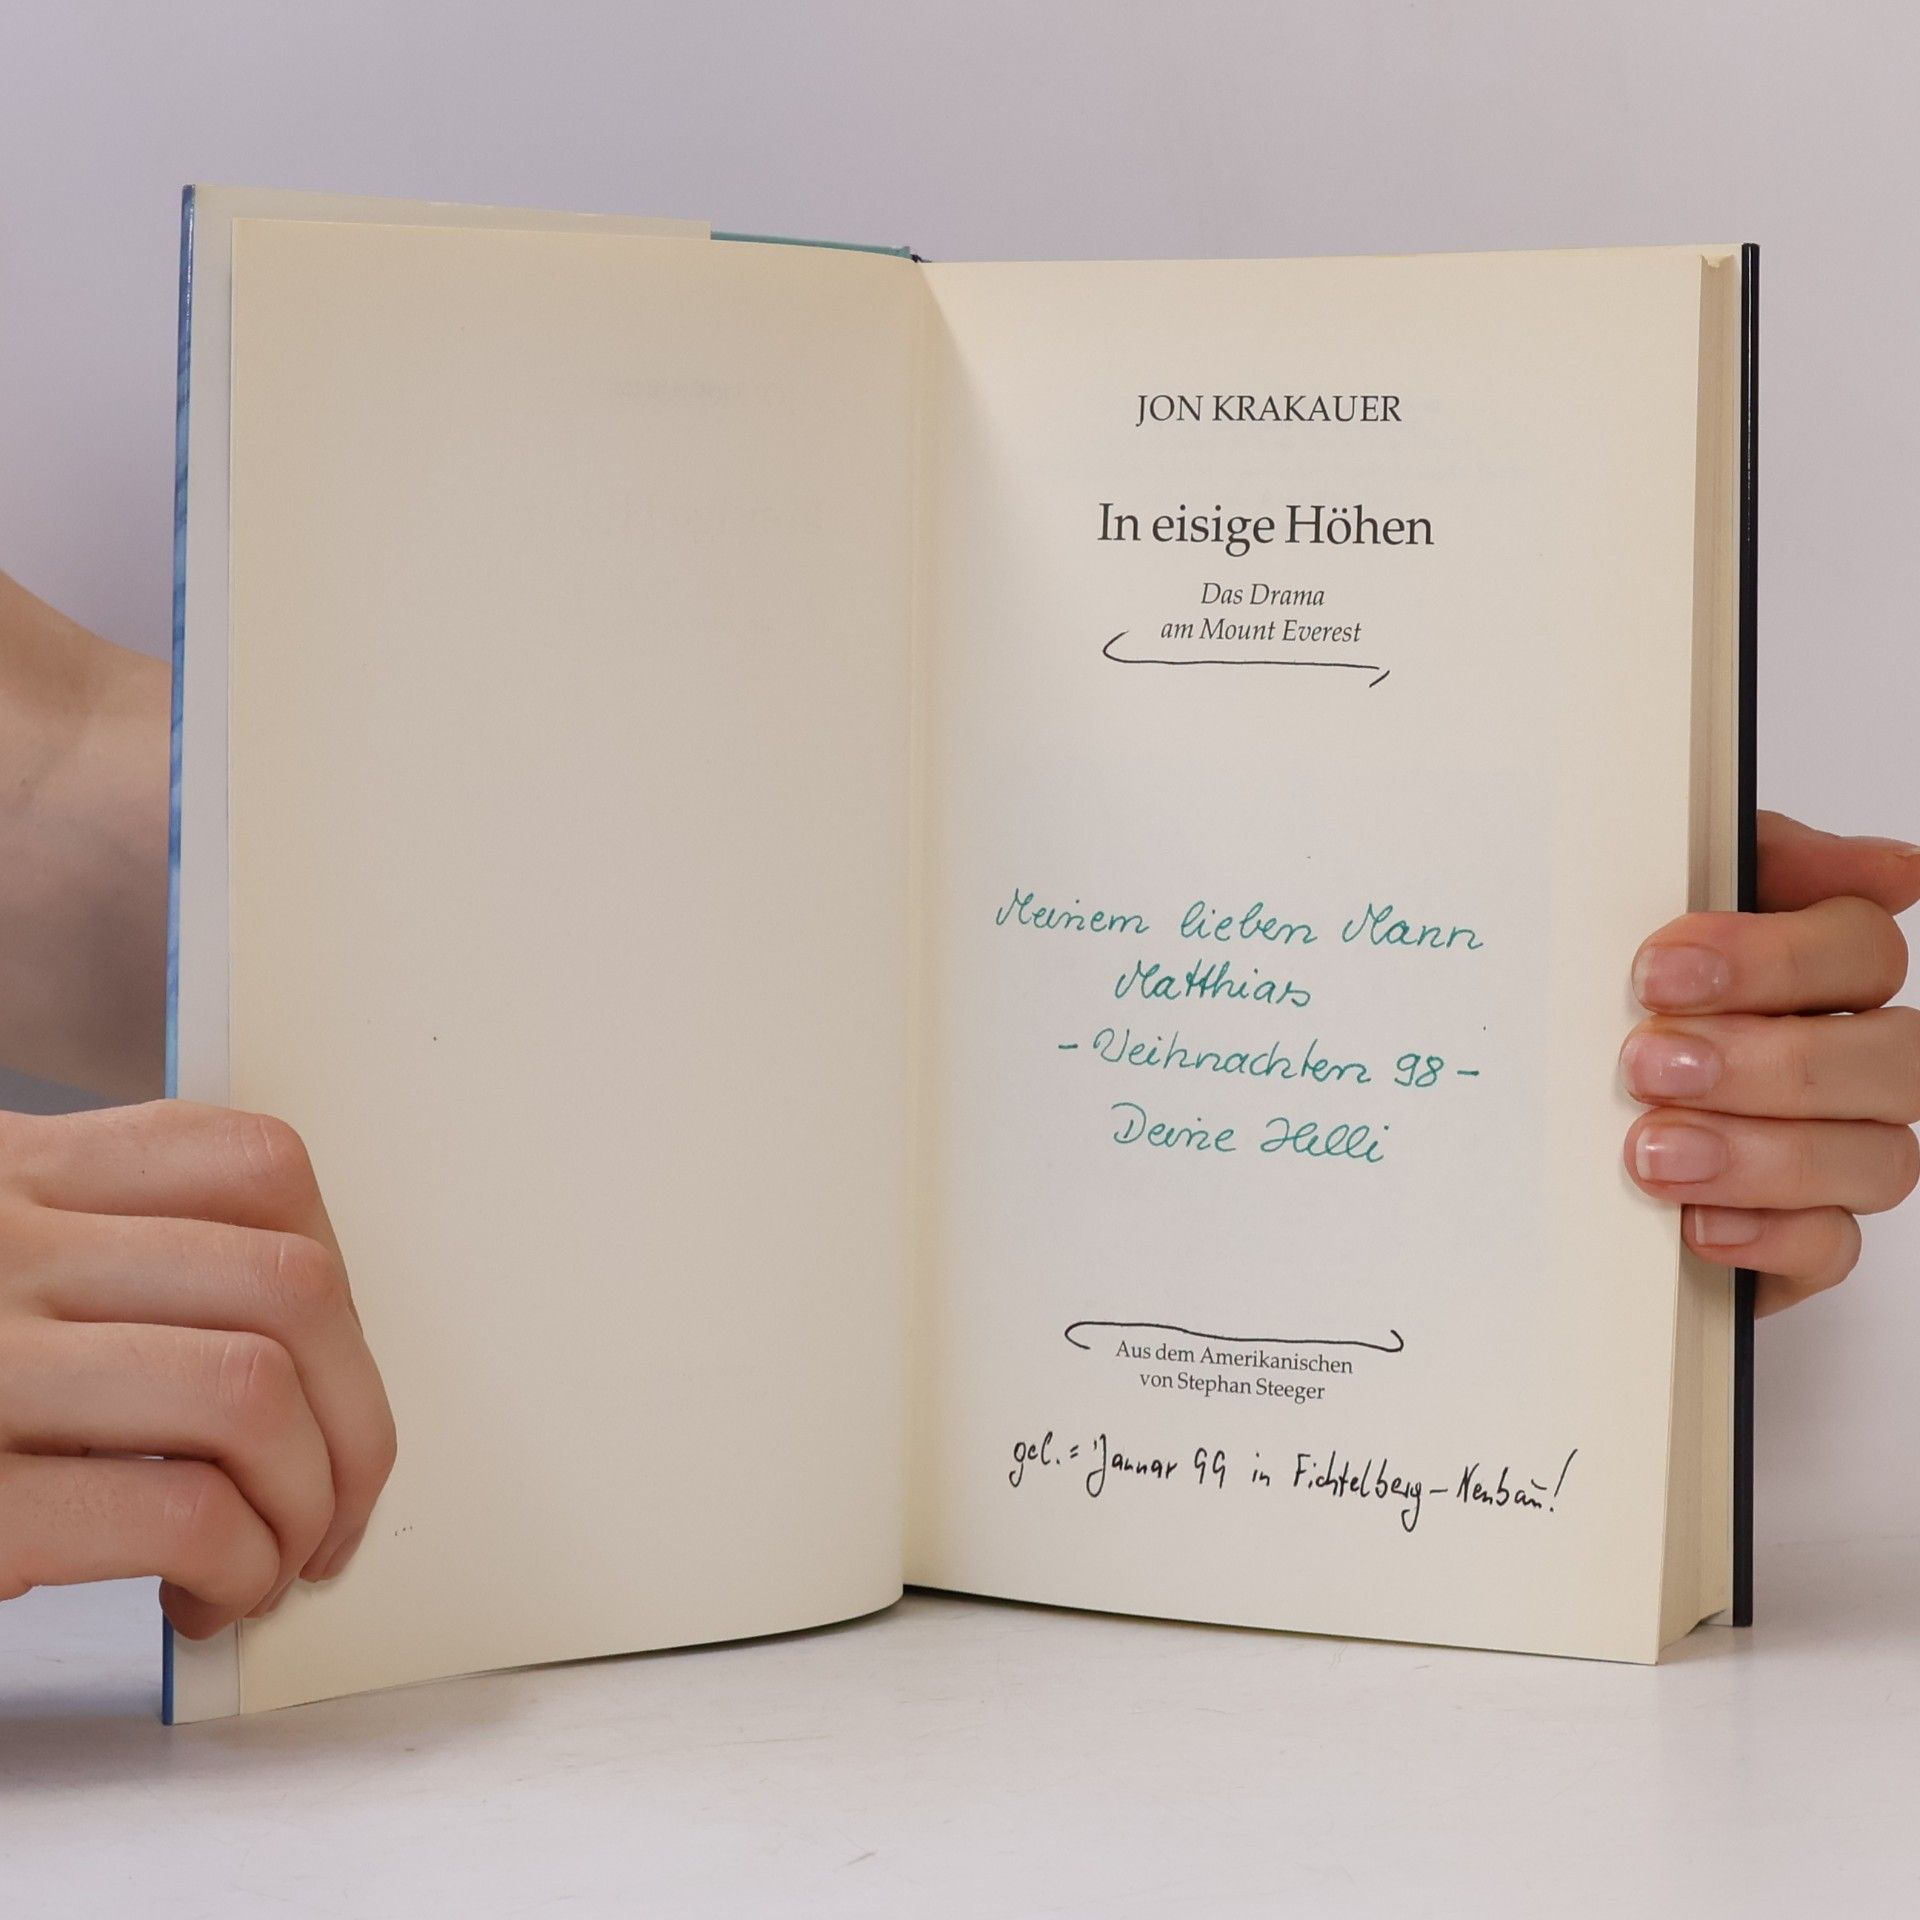 JON KRAKAUER
In eisige Höhen
Das Drama
am Mount Everest
Meinem lieben Mann
Matthias
- Weihnachten 98 -
Deine Helli
Aus dem Amerikanischen
von Stephan Steeger
gel. = Januar 99 in Fichtelberg - Neubau!